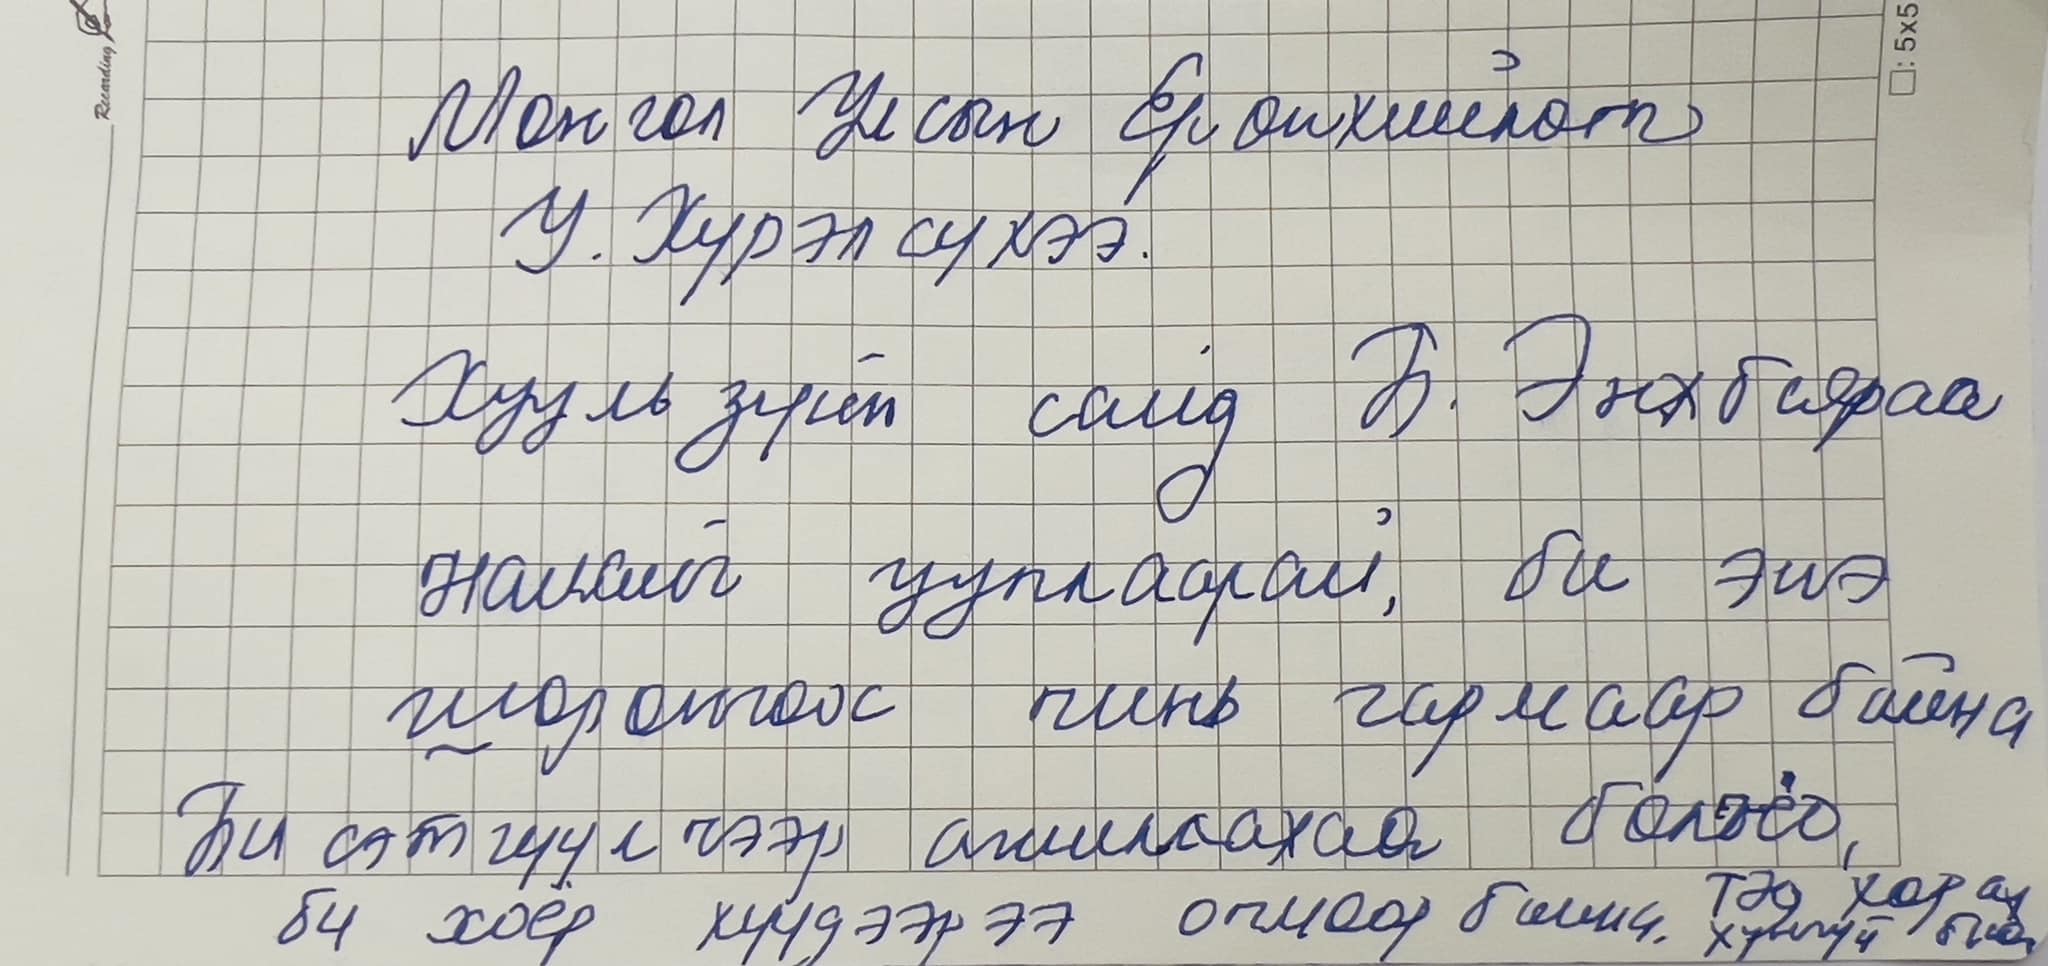 Recording
□: 5x5
Монгол Улсын Ерөнхийлөгч
У. Хүрэлсүхээ.
Хууль зүйн сайд Б. Энхбаяраа
Намайг уучлаарай, би энэ
шоронгоос чинь гармаар байна
Би сэтгүүлчээр ажиллахаа больё,
би хоёр хүүдээрээ очмоор байна. Тэд харах
хүнгүй байна